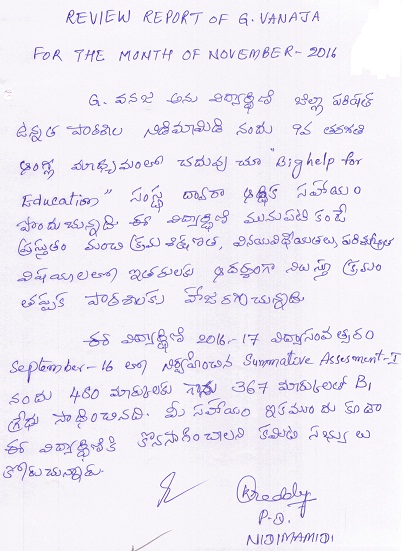 REVIEW REPORT OF G. VANAJA
FOR THE MONTH OF NOVEMBER - 2016
G. వనజ అను విద్యార్థిని జిల్లా పరిషత్
ఉన్నత పాఠశాల నిడిమామిడి నందు 9వ తరగతి
ఆంగ్ల మాధ్యమంలో చదువు చూ "Bighelp for
Education" సంస్థ ద్వారా ఆర్థిక సహాయం
పొందుచున్నది. ఈ విద్యార్థిని మునుపటి కంటే
ప్రస్తుతం మంచి క్రమశిక్షణత, వినయవిధేయతలు,
విషయాలలో ఇతరులకు ఆదర్శంగా నిలుస్తూ క్రమం
తప్పక పాఠశాలకు హాజరగుచున్నాడు.
ఈ విద్యార్థిని 2016-17 విద్యాసంవత్సరం
September-16 లో నిర్వహించిన Summative Assesment-I
నందు 480 మార్కులకు గాను 367 మార్కులతో B1
గ్రేడు సాధించినది. మీ సహాయం ఇకముందు కూడా
ఈ విద్యార్థినికి కొనసాగించాలని కమిటి సభ్యులు
కోరుచున్నారు.
Kreddy
P.D.
NIDIMAMIDI